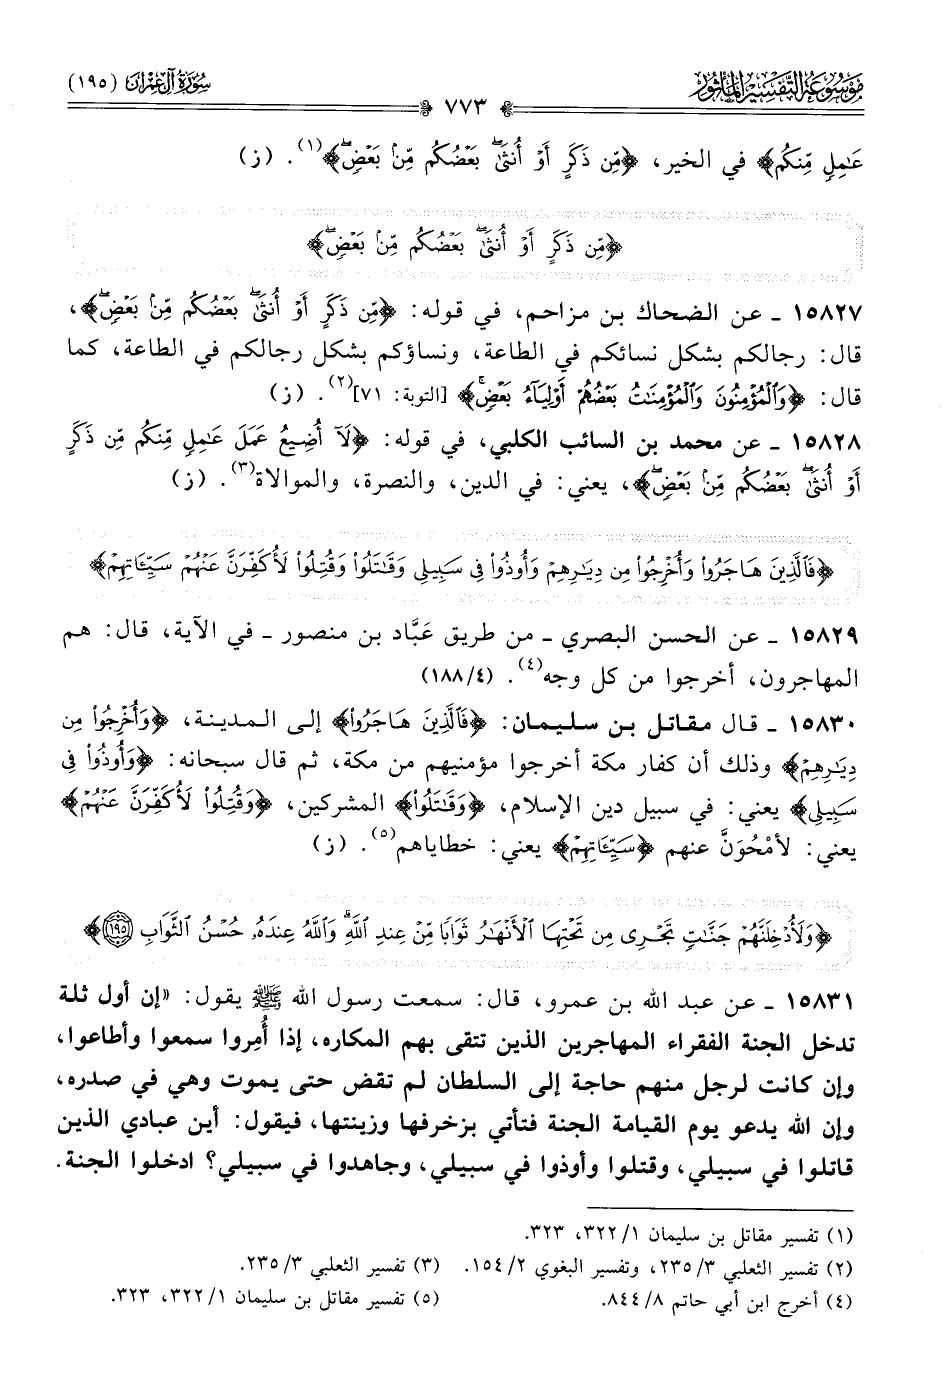 مَوْسُوعَةُ التَّفْسِيرِ المَأْثُور
سُورَةُ آلِ عِمْرَان (١٩٥)
٧٧٣
عَٰمِلٍ مِّنكُم﴾ في الخير، ﴿مِّن ذَكَرٍ أَوْ أُنثَىٰۖ بَعْضُكُم مِّنۢ بَعْضٖۖ﴾(١). (ز)
﴿مِّن ذَكَرٍ أَوْ أُنثَىٰۖ بَعْضُكُم مِّنۢ بَعْضٖۖ﴾
١٥٨٢٧ ـ عن الضحاك بن مزاحم، في قوله: ﴿مِّن ذَكَرٍ أَوْ أُنثَىٰۖ بَعْضُكُم مِّنۢ بَعْضٖۖ﴾،
قال: رجالكم بشكل نسائكم في الطاعة، ونساؤكم بشكل رجالكم في الطاعة، كما
قال: ﴿وَٱلْمُؤْمِنُونَ وَٱلْمُؤْمِنَٰتُ بَعْضُهُمْ أَوْلِيَآءُ بَعْضٖۚ﴾ [التوبة: ٧١](٢). (ز)
١٥٨٢٨ ـ عن محمد بن السائب الكلبي، في قوله: ﴿لَآ أُضِيعُ عَمَلَ عَٰمِلٍ مِّنكُم مِّن ذَكَرٍ
أَوْ أُنثَىٰۖ بَعْضُكُم مِّنۢ بَعْضٖۖ﴾، يعني: في الدين، والنصرة، والموالاة(٣). (ز)
﴿فَٱلَّذِينَ هَاجَرُوا۟ وَأُخْرِجُوا۟ مِن دِيَٰرِهِمْ وَأُوذُوا۟ فِى سَبِيلِى وَقَٰتَلُوا۟ وَقُتِلُوا۟ لَأُكَفِّرَنَّ عَنْهُمْ سَيِّـَٔاتِهِمْ﴾
١٥٨٢٩ ـ عن الحسن البصري ـ من طريق عَبَّاد بن منصور ـ في الآية، قال: هم
المهاجرون، أخرجوا من كل وجه(٤). (٤/ ١٨٨)
١٥٨٣٠ ـ قال مقاتل بن سليمان: ﴿فَٱلَّذِينَ هَاجَرُوا۟﴾ إلى المدينة، ﴿وَأُخْرِجُوا۟ مِن
دِيَٰرِهِمْ﴾ وذلك أن كفار مكة أخرجوا مؤمنيهم من مكة، ثم قال سبحانه: ﴿وَأُوذُوا۟ فِى
سَبِيلِى﴾ يعني: في سبيل دين الإسلام، ﴿وَقَٰتَلُوا۟﴾ المشركين، ﴿وَقُتِلُوا۟ لَأُكَفِّرَنَّ عَنْهُمْ﴾
يعني: لأمْحُوَنَّ عنهم ﴿سَيِّـَٔاتِهِمْ﴾ يعني: خطاياهم(٥). (ز)
﴿وَلَأُدْخِلَنَّهُمْ جَنَّٰتٍ تَجْرِى مِن تَحْتِهَا ٱلْأَنْهَٰرُ ثَوَابًا مِّنْ عِندِ ٱللَّهِۗ وَٱللَّهُ عِندَهُۥ حُسْنُ ٱلثَّوَابِ ١٩٥﴾
١٥٨٣١ ـ عن عبد الله بن عمرو، قال: سمعت رسول الله ﷺ يقول: «إن أول ثلة
تدخل الجنة الفقراء المهاجرين الذين تتقى بهم المكاره، إذا أُمِروا سمعوا وأطاعوا،
وإن كانت لرجل منهم حاجة إلى السلطان لم تقض حتى يموت وهي في صدره،
وإن الله يدعو يوم القيامة الجنة فتأتي بزخرفها وزينتها، فيقول: أين عبادي الذين
قاتلوا في سبيلي، وقتلوا وأوذوا في سبيلي، وجاهدوا في سبيلي؟ ادخلوا الجنة.
(١) تفسير مقاتل بن سليمان ١/ ٣٢٢، ٣٢٣.
(٢) تفسير الثعلبي ٣/ ٢٣٥، وتفسير البغوي ٢/ ١٥٤. (٣) تفسير الثعلبي ٣/ ٢٣٥.
(٤) أخرج ابن أبي حاتم ٨/ ٨٤٤. (٥) تفسير مقاتل بن سليمان ١/ ٣٢٢، ٣٢٣.